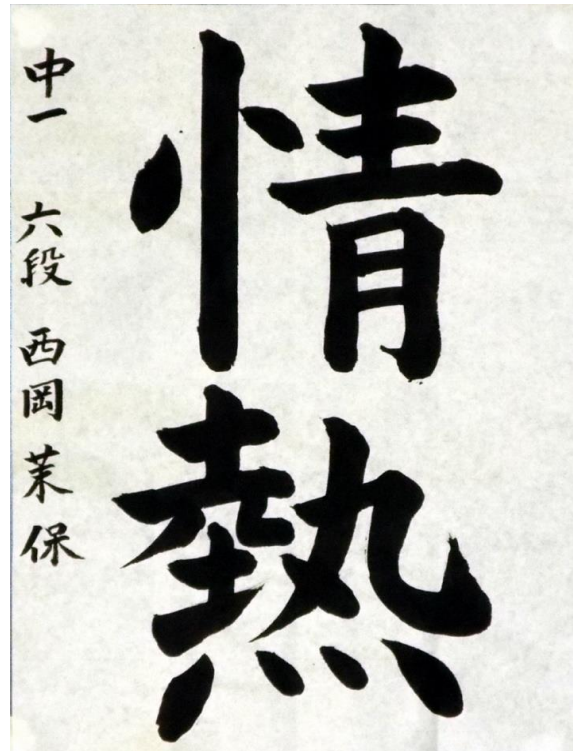 情熱
中一 六段 西岡茉保